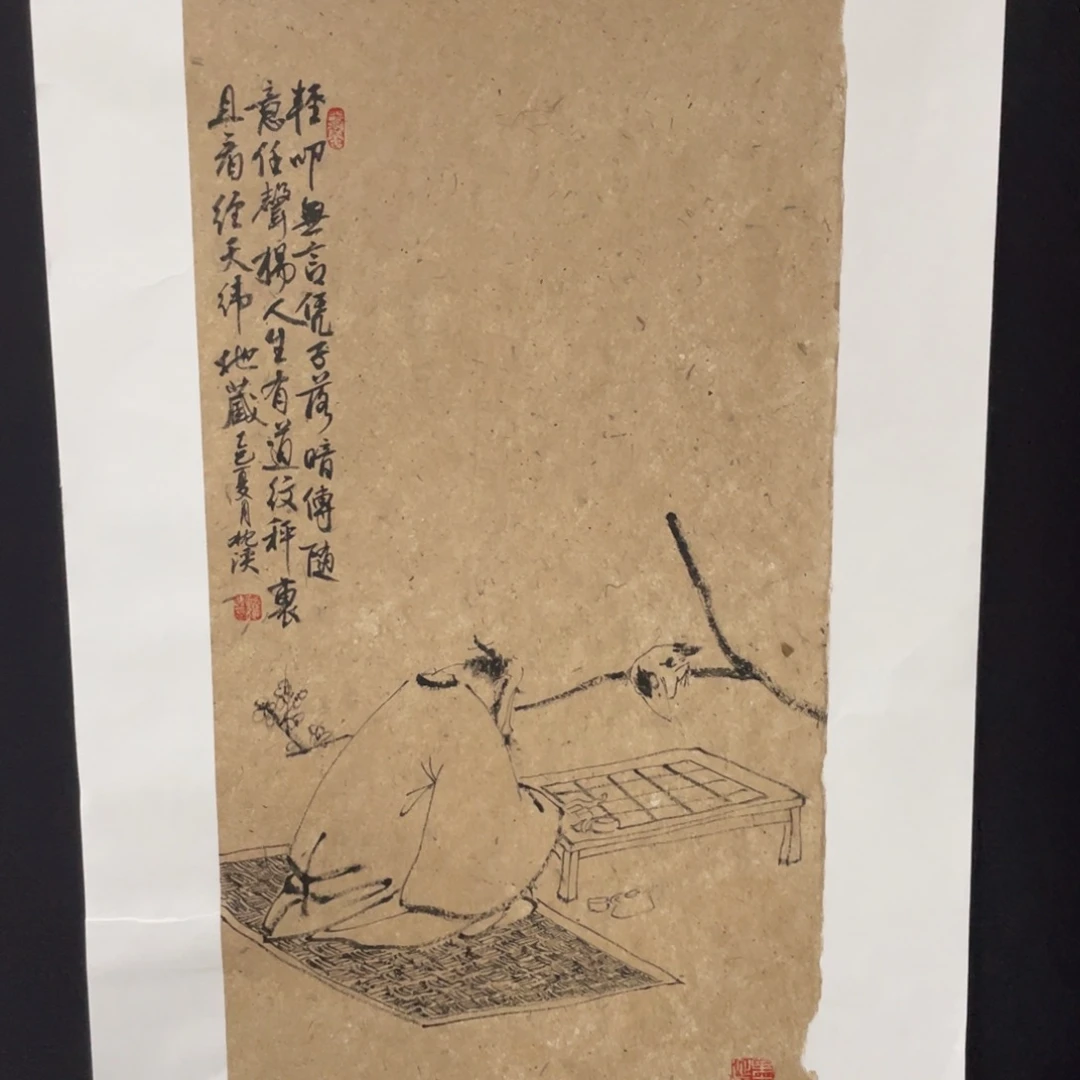 輕叩無言凭子落暗傳隨
意任聲揚人生有道紋秤裏
且看經天緯地藏乙巳夏月